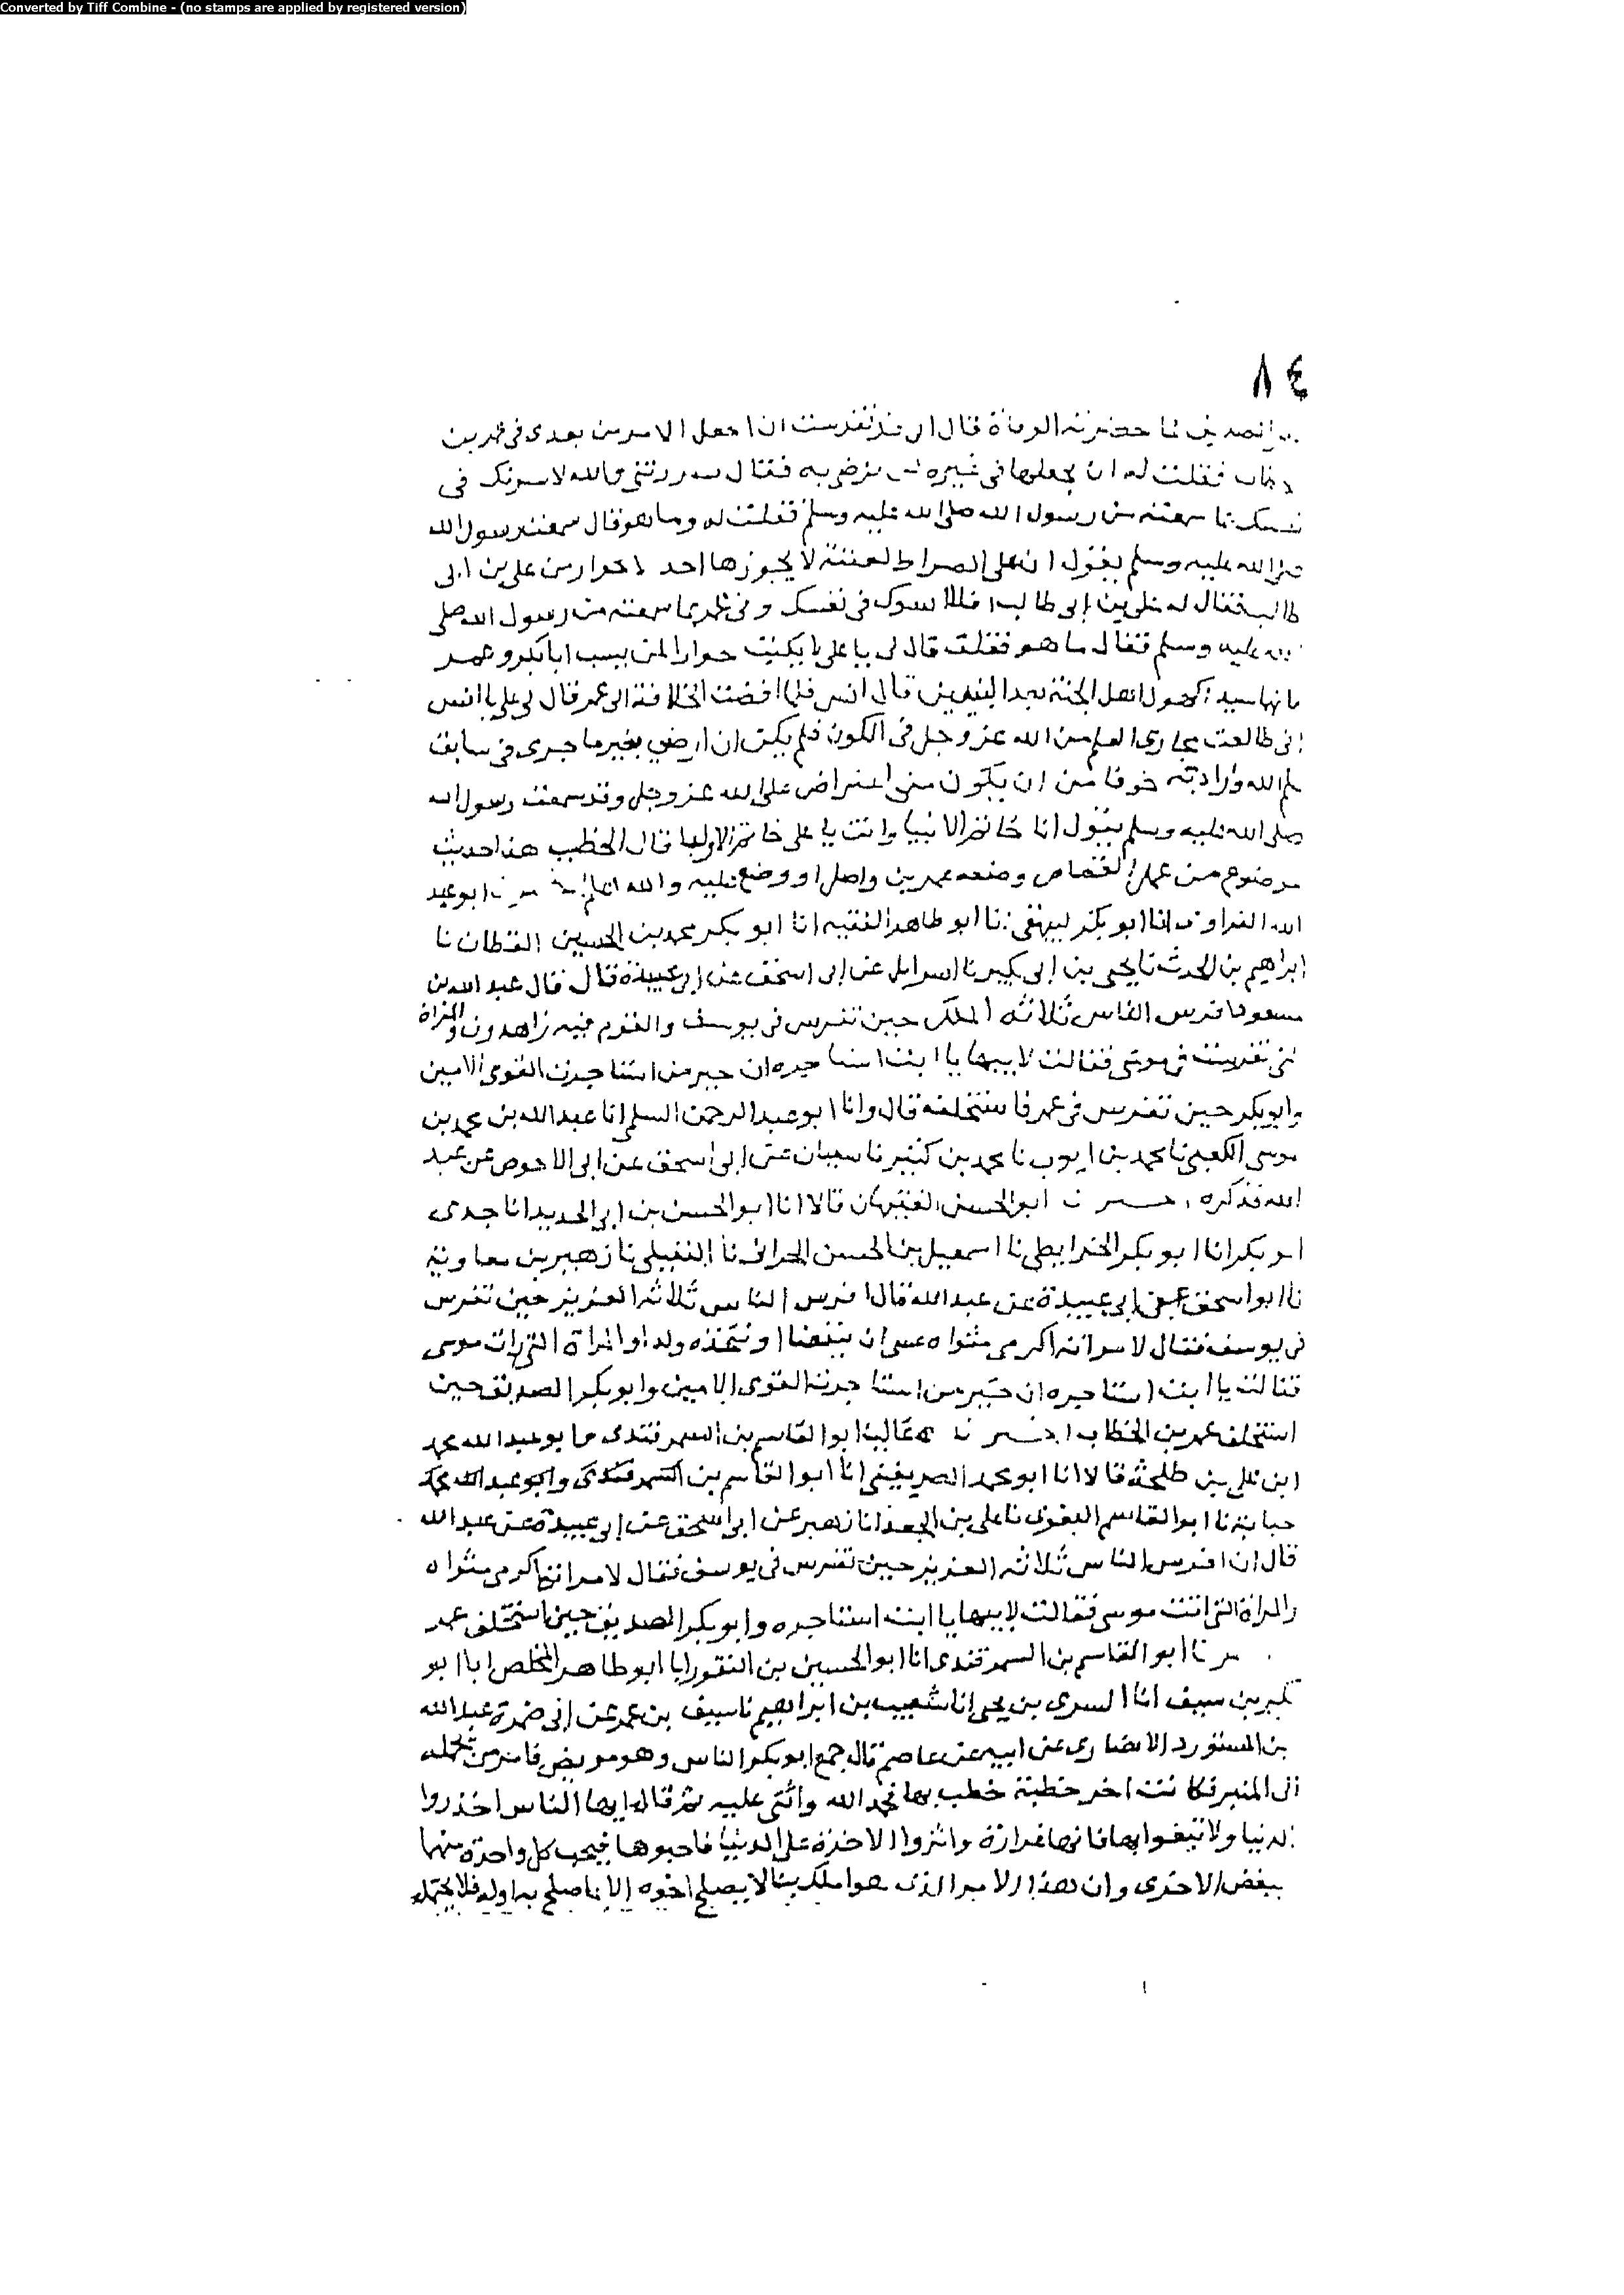 Converted by Tiff Combine - (no stamps are applied by registered version)
٨٤
الصديق لما حضرته الوفاة قال اني قد تفرست ان اجعل الامر من بعدي في عمر بن
فقلت له ان يجعلها في غيره لن نرضى به فقال سررتني والله لاسرنك في
نفسك بما سمعته من رسول الله صلى الله عليه وسلم فقلت له وما هو قال سمعت رسول الله
صلى الله عليه وسلم يقول ان على الصراط لعقبة لا يجوزها احد الا بجواز من علي بن ابي
طالب فقال له علي بن ابي طالب افلا اسرك في نفسك وفي عمر بما سمعته من رسول الله صلى
الله عليه وسلم فقال ما هو فقلت قال لي يا علي لا يكتب جوازا لمن يسب ابا بكر وعمر
فانهما سيدا كهول اهل الجنة بعد النبيين قال انس فلما افضت الخلافة الى عمر قال لي علي يا انس
اني طالعت مجاري العلم من الله عز وجل في الكون فلم يكن ان ارضى بغير ما جرى في سابق
علم الله وارادته خوفا من ان يكون مني اعتراض على الله عز وجل وقد سمعت رسول الله
صلى الله عليه وسلم يقول انا خاتم الانبيا وانت يا علي خاتم الاوليا قال الخطيب هذا حديث
موضوع من عمل القصاص وضعه عمر بن واصل او وضع عليه والله اعلم ابو عبد
الله الفراوي انا ابو بكر البيهقي انا ابو طاهر الفقيه انا ابو بكر محمد بن الحسين القطان نا
ابراهيم بن الحرث نا يحيى بن ابي بكير نا اسرايل عن ابي اسحق عن ابي عبيدة قال قال عبد الله بن
مسعود افرس الناس ثلاثة الملك حين تفرس في يوسف والقوم فيه زاهدون والمراة
التي تفرست في موسى فقالت لابيها يا ابت استاجره ان خير من استاجرت القوي الامين
وابو بكر حين تفرس في عمر فاستخلفه قال وانا ابو عبد الرحمن السلمي انا عبد الله بن محمد بن
موسى الكعبي نا محمد بن ايوب نا محمد بن كثير نا سفيان عن ابي اسحق عن ابي الاحوص عن عبد
الله فذكره نا ابو الحسن الفقيهان قالا انا ابو الحسن بن ابي الحديد انا جدي
ابو بكر انا ابو بكر الخرايطي نا اسمعيل بن الحسن الحراني نا النفيلي نا زهير بن معاوية
نا ابو اسحق عن ابي عبيدة عن عبد الله قال افرس الناس ثلاثة العزيز حين تفرس
في يوسف فقال لامراته اكرمي مثواه عسى ان ينفعنا او نتخذه ولدا والمراة التي رات موسى
فقالت يا ابت استاجره ان خير من استاجرت القوي الامين وابو بكر الصديق حين
استخلف عمر بن الخطاب نا ابو القاسم بن السمرقندي وابو عبد الله محمد
ابن علي بن طلحة قالا انا ابو محمد الصريفيني انا ابو القاسم بن السمرقندي وابو عبد الله محمد
حبابة نا ابو القاسم البغوي نا علي بن الجعد انا زهير عن ابي اسحق عن ابي عبيدة عن عبد الله
قال ان افرس الناس ثلاثة العزيز حين تفرس في يوسف فقال لامراته اكرمي مثواه
والمراة التي اتت موسى فقالت لابيها يا ابت استاجره وابو بكر الصديق حين استخلف عمر
نا ابو القاسم بن السمرقندي انا ابو الحسين بن النقور انا ابو طاهر المخلص انا ابو
بكر بن سيف انا السري بن يحيى انا شعيب بن ابراهيم نا سيف بن عمر عن ابي ضمرة عبد الله
بن المستورد الانصاري عن ابيه عن عاصم قال جمع ابو بكر الناس وهو مريض فامر من يحمله
الى المنبر فكانت اخر خطبة خطب بها فحمد الله واثنى عليه ثم قال ايها الناس احذروا
الدنيا ولا تثقوا بها فانها غرارة واثروا الاخرة على الدنيا فاحبوها فبحب كل واحدة منهما
يبغض الاخرى وان هذا الامر الذي هو املك بنا لا يصلح اخره الا بما صلح به اوله فلا يحتمله